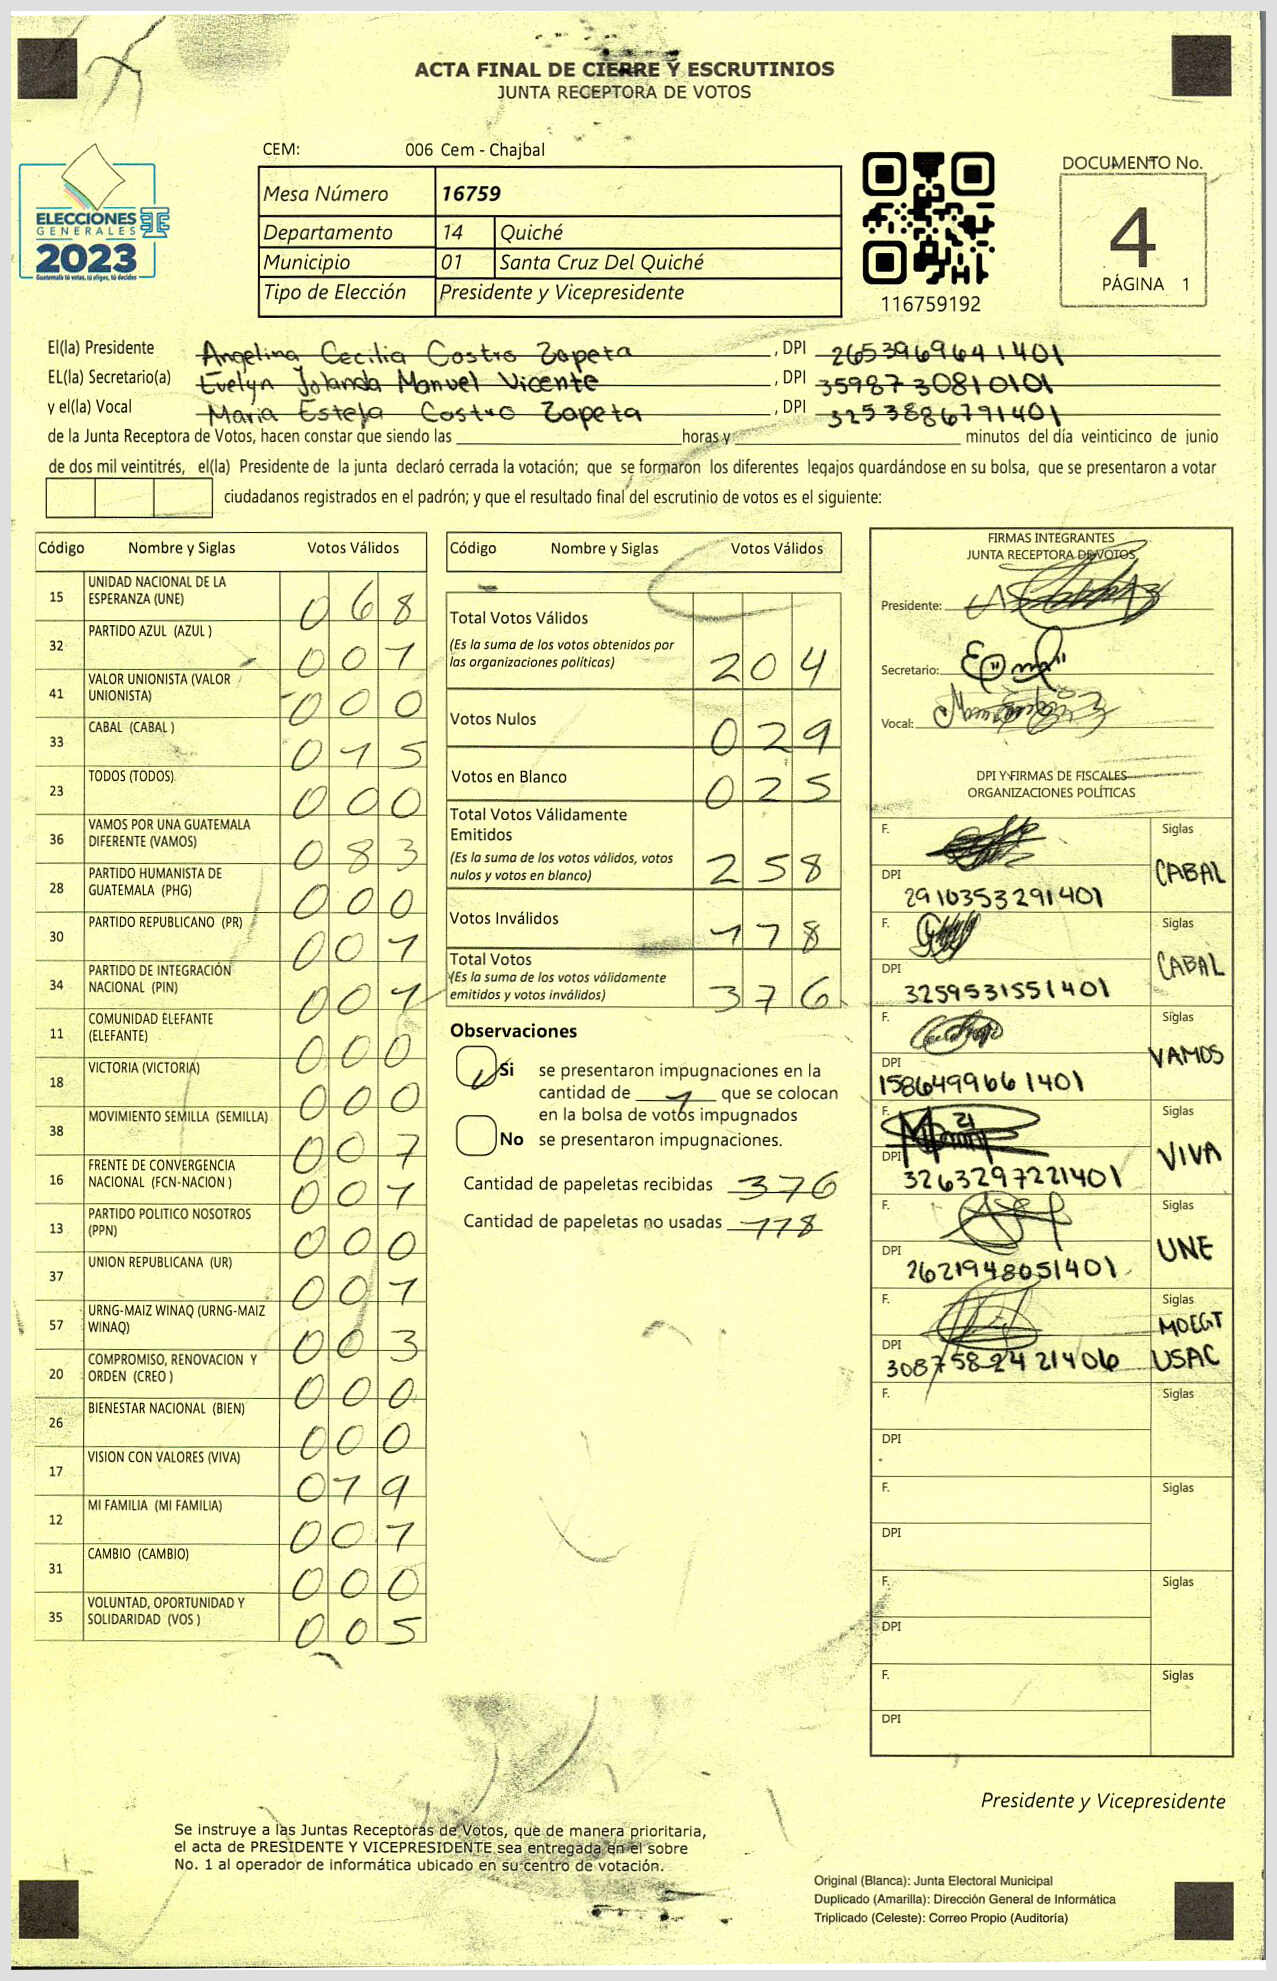 ACTA FINAL DE CIERRE Y ESCRUTINIOS
JUNTA RECEPTORA DE VOTOS
CEM: 006 Cem - Chajbal
Mesa Número 16759
Departamento 14 Quiché
Municipio 01 Santa Cruz Del Quiché
Tipo de Elección Presidente y Vicepresidente
ELECCIONES
GENERALES
2023
Guatemala tú votas, tú eliges, tú decides
116759192
DOCUMENTO No.
4
PÁGINA 1
El(la) Presidente Angelina Cecilia Castro Zapeta, DPI 2653969641401
EL(la) Secretario(a) Evelyn Yolanda Manuel Vicente, DPI 3598730810101
y el(la) Vocal Maria Estela Castro Zapeta, DPI 3253886791401
de la Junta Receptora de Votos, hacen constar que siendo las ____ horas y ____ minutos del día veinticinco de junio
de dos mil veintitrés, el(la) Presidente de la junta declaró cerrada la votación; que se formaron los diferentes legajos guardándose en su bolsa, que se presentaron a votar
ciudadanos registrados en el padrón; y que el resultado final del escrutinio de votos es el siguiente:
Código Nombre y Siglas Votos Válidos
15 UNIDAD NACIONAL DE LA ESPERANZA (UNE) 068
32 PARTIDO AZUL (AZUL ) 001
41 VALOR UNIONISTA (VALOR UNIONISTA) 000
33 CABAL (CABAL ) 015
23 TODOS (TODOS) 000
36 VAMOS POR UNA GUATEMALA DIFERENTE (VAMOS) 083
28 PARTIDO HUMANISTA DE GUATEMALA (PHG) 000
30 PARTIDO REPUBLICANO (PR) 001
34 PARTIDO DE INTEGRACIÓN NACIONAL (PIN) 001
11 COMUNIDAD ELEFANTE (ELEFANTE) 000
18 VICTORIA (VICTORIA) 000
38 MOVIMIENTO SEMILLA (SEMILLA) 007
16 FRENTE DE CONVERGENCIA NACIONAL (FCN-NACION ) 001
13 PARTIDO POLITICO NOSOTROS (PPN) 000
37 UNION REPUBLICANA (UR) 001
57 URNG-MAIZ WINAQ (URNG-MAIZ WINAQ) 003
20 COMPROMISO, RENOVACION Y ORDEN (CREO ) 000
26 BIENESTAR NACIONAL (BIEN) 000
17 VISION CON VALORES (VIVA) 019
12 MI FAMILIA (MI FAMILIA) 001
31 CAMBIO (CAMBIO) 000
35 VOLUNTAD, OPORTUNIDAD Y SOLIDARIDAD (VOS ) 005
Código Nombre y Siglas Votos Válidos
Total Votos Válidos 204
(Es la suma de los votos obtenidos por
las organizaciones políticas)
Votos Nulos 029
Votos en Blanco 025
Total Votos Válidamente
Emitidos 258
(Es la suma de los votos válidos, votos
nulos y votos en blanco)
Votos Inválidos 118
Total Votos 376
(Es la suma de los votos válidamente
emitidos y votos inválidos)
Observaciones
Si se presentaron impugnaciones en la
cantidad de 1 que se colocan
en la bolsa de votos impugnados
No se presentaron impugnaciones.
Cantidad de papeletas recibidas 376
Cantidad de papeletas no usadas 118
FIRMAS INTEGRANTES
JUNTA RECEPTORA DE VOTOS
Presidente:
Secretario:
Vocal:
DPI Y FIRMAS DE FISCALES
ORGANIZACIONES POLÍTICAS
F. Siglas
CABAL
DPI 2910353291401
F. Siglas
CABAL
DPI 3259531551401
F. Siglas
VAMOS
DPI 1586499661401
F. Siglas
VIVA
DPI 3263297221401
F. Siglas
UNE
DPI 2621948051401
F. Siglas
MOEGT
USAC
DPI 3087582421406
F. Siglas
DPI
F. Siglas
DPI
F. Siglas
DPI
F. Siglas
DPI
Presidente y Vicepresidente
Se instruye a las Juntas Receptoras de Votos, que de manera prioritaria,
el acta de PRESIDENTE Y VICEPRESIDENTE sea entregada en el sobre
No. 1 al operador de informática ubicado en su centro de votación.
Original (Blanca): Junta Electoral Municipal
Duplicado (Amarilla): Dirección General de Informática
Triplicado (Celeste): Correo Propio (Auditoría)